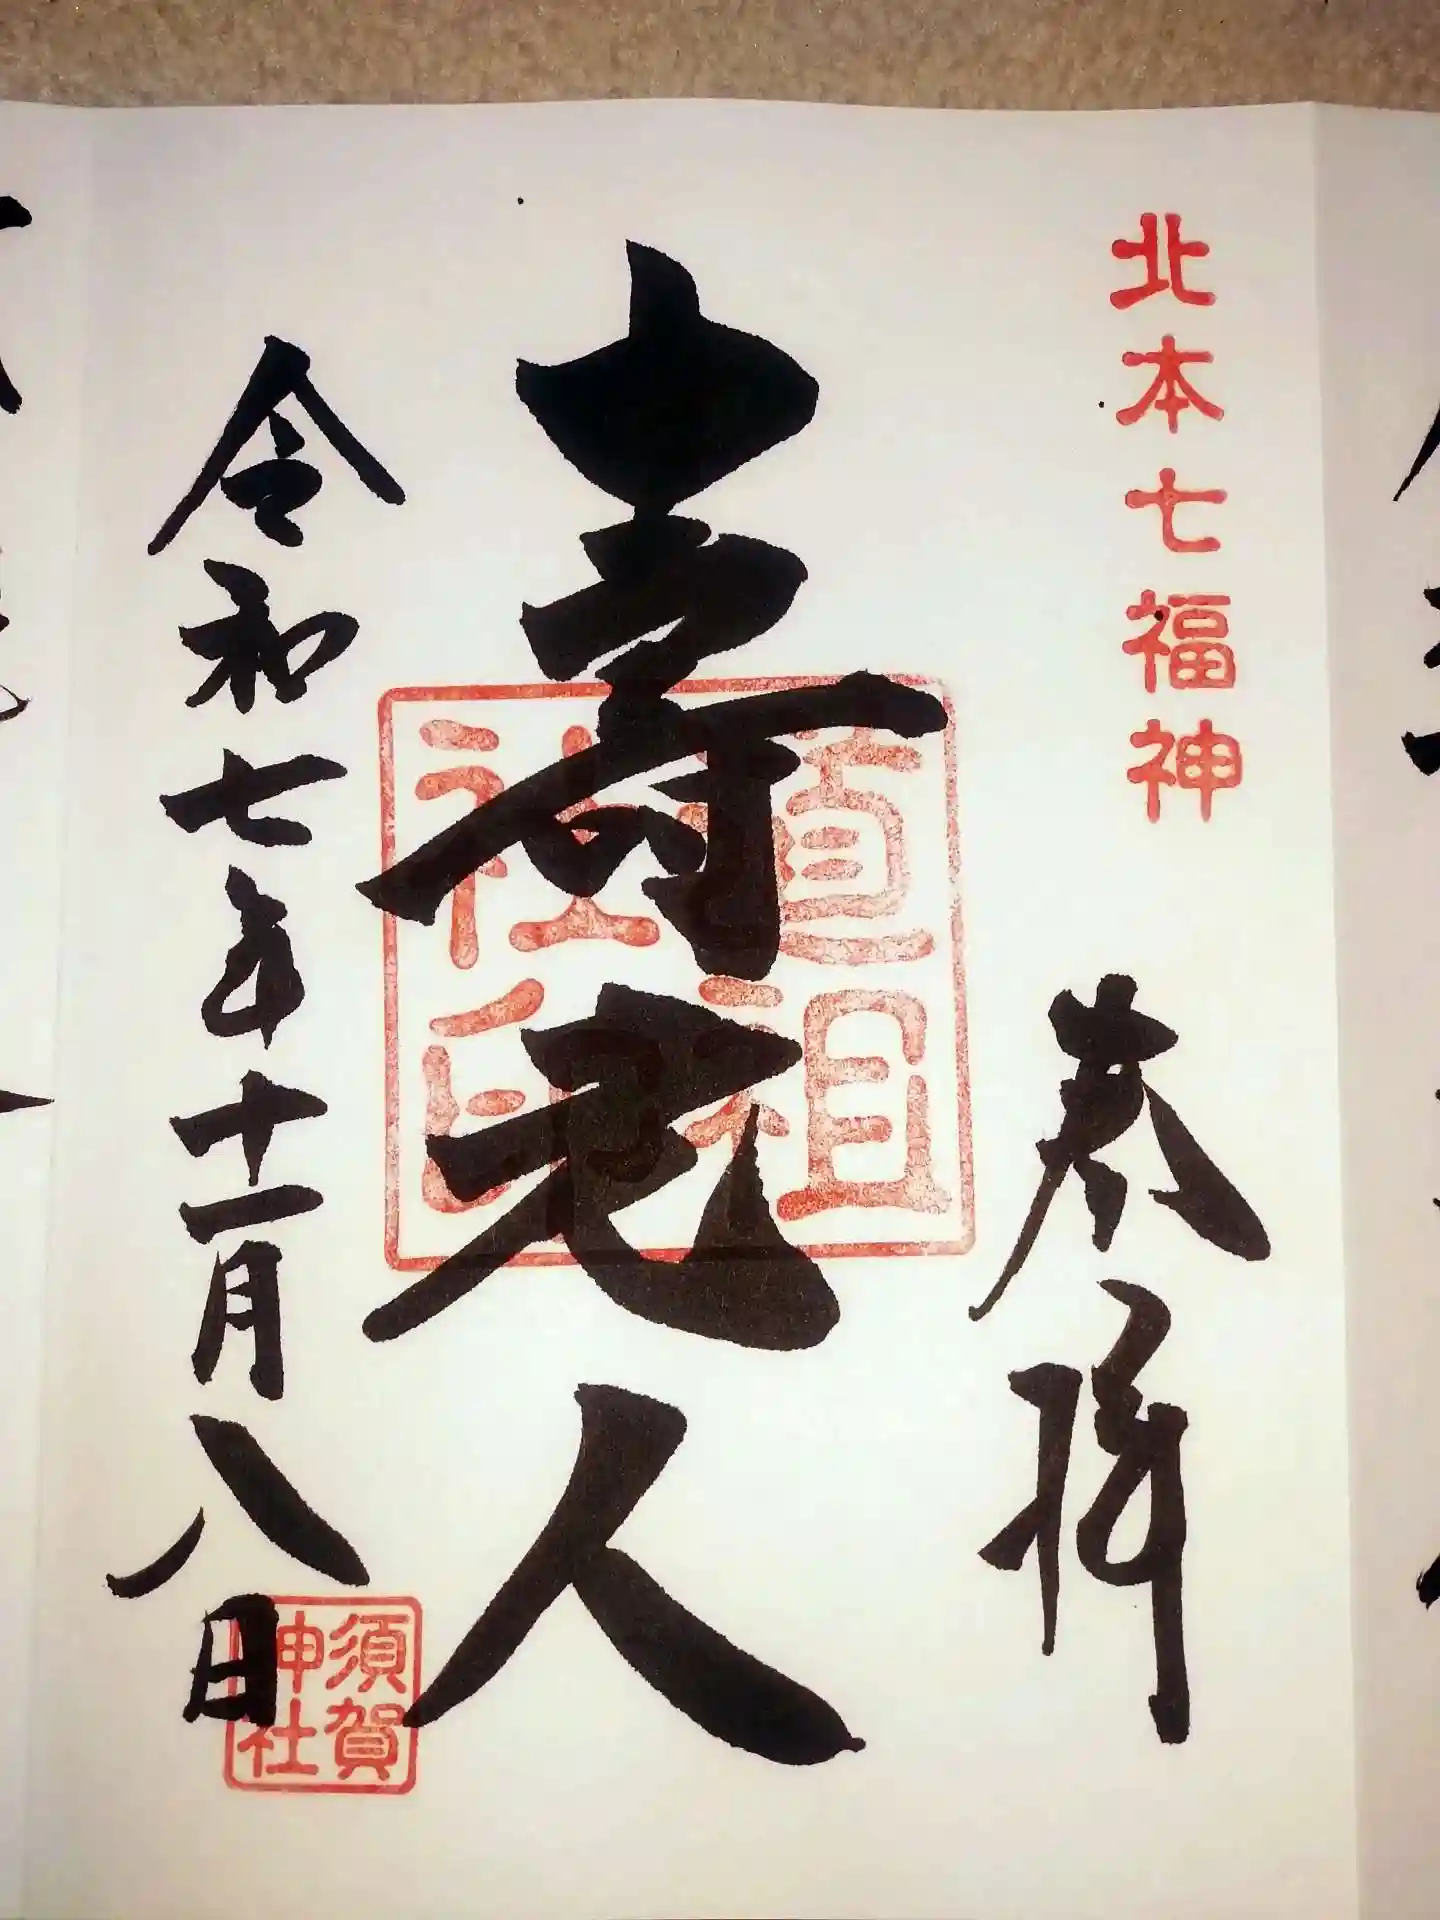 北本七福神
奉拝
寿老人
道祖
社印
令和七年十一月八日
須賀
神社